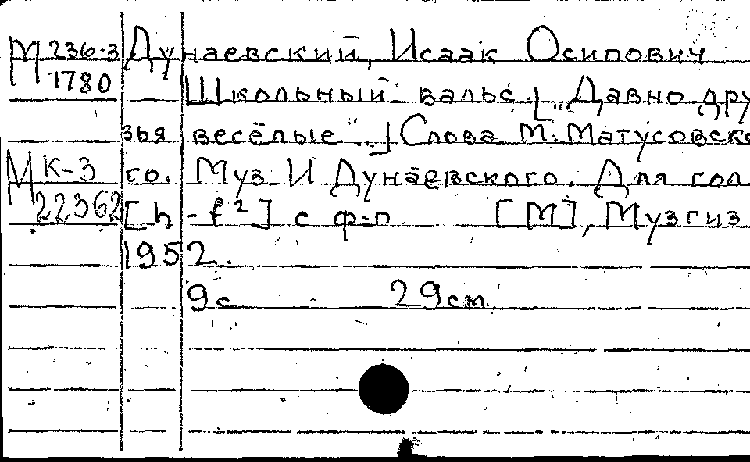 М 236-3 Дунаевский, Исаак Осипович
1780 Школьный вальс. [„Давно дру
зья весёлые"..] Слова М. Матусовско
М К-3 го. Муз И Дунаевского. Для гол
22362 [h - f²] с ф-п [М], Музгиз
1952.
9с. 29см.